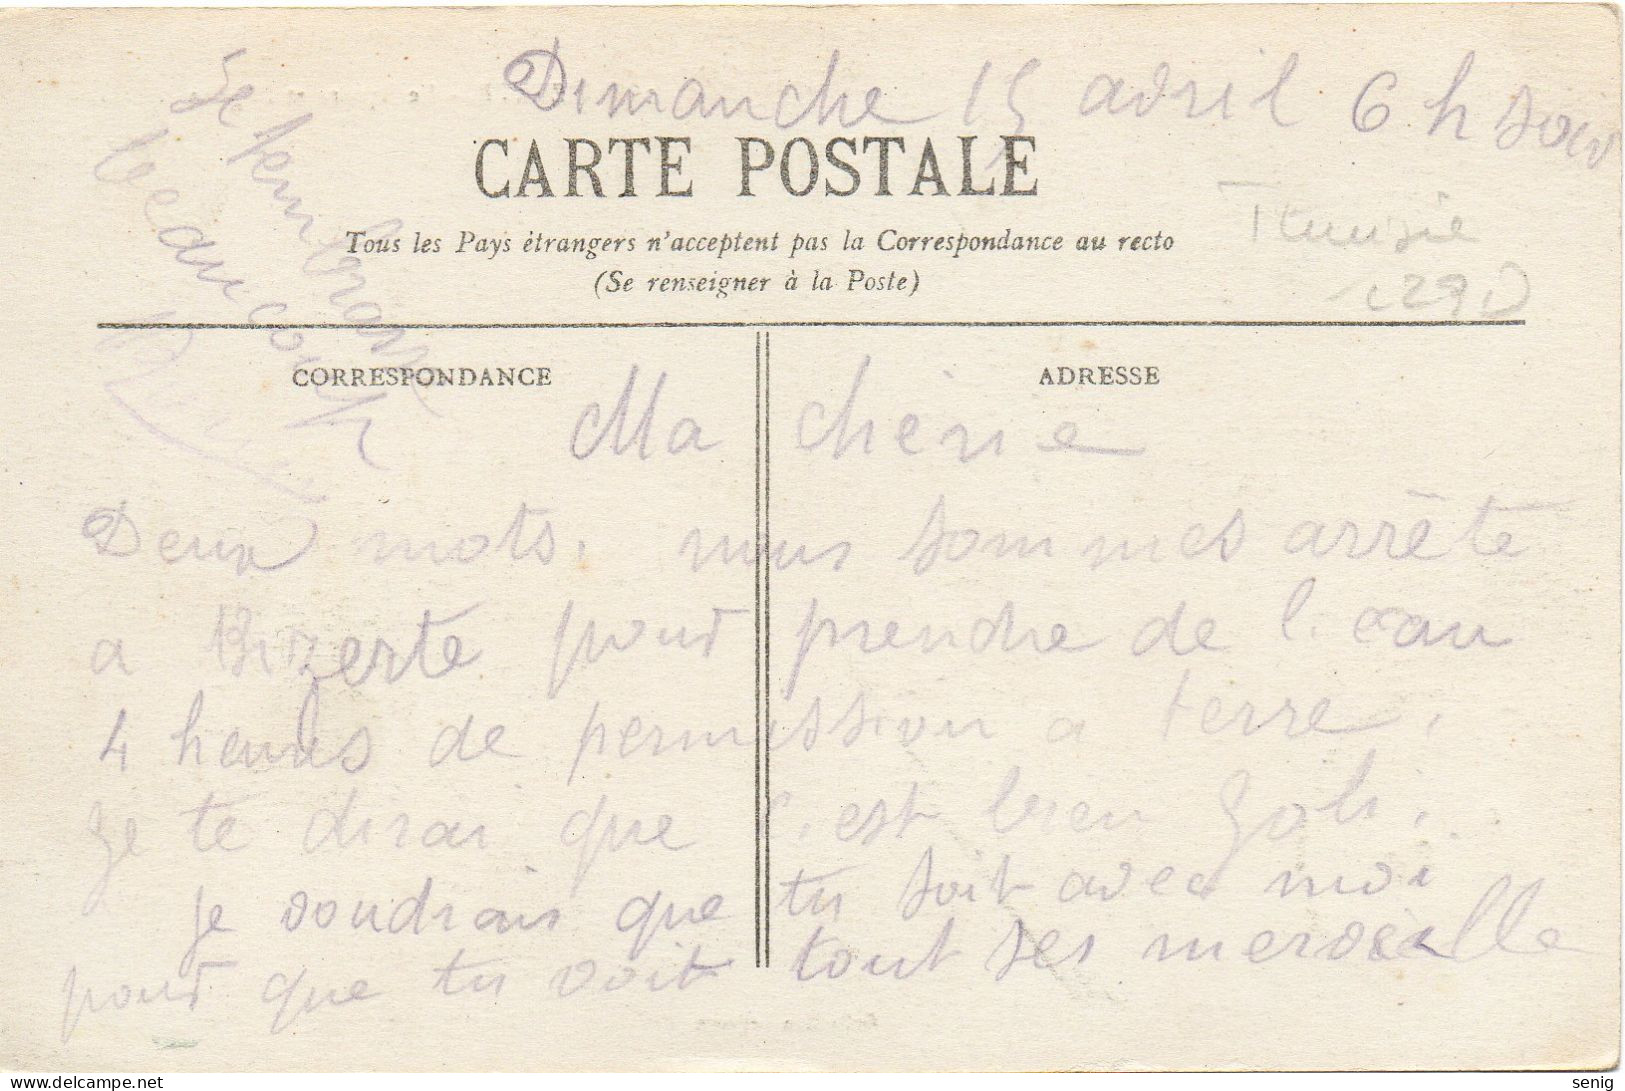 Dimanche 15 avril 6 h soir
CARTE POSTALE
Tous les Pays étrangers n'acceptent pas la Correspondance au recto
(Se renseigner à la Poste)
Tunisie
CORRESPONDANCE
ADRESSE
Ma cherie
Deux mots. nous sommes arrête
a Bizerte pour prendre de l'eau
4 heures de permission a terre.
Je te dirai que c'est bien Joli.
je voudrais que tu soit avec moi
pour que tu voit tout ses merveille
Je t'embrasse
beaucoup
https://www.delcampe.net
senig